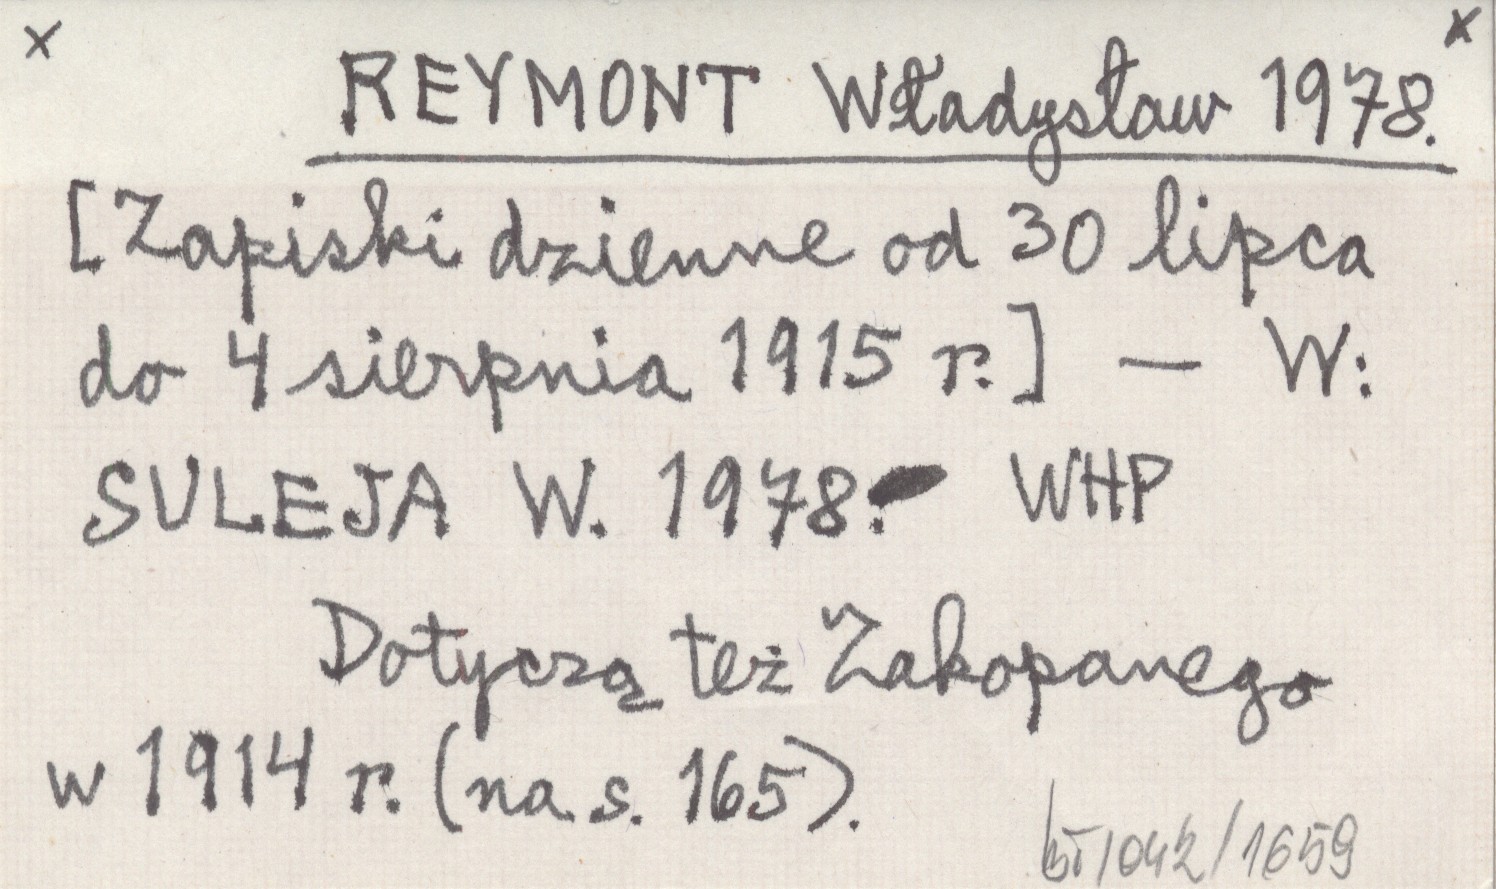 x x
REYMONT Władysław 1978.
[Zapiski dzienne od 30 lipca
do 4 sierpnia 1915 r.] — W:
SULEJA W. 1978. WHP
Dotyczą też Zakopanego
w 1914 r. (na s. 165).
/042/1659